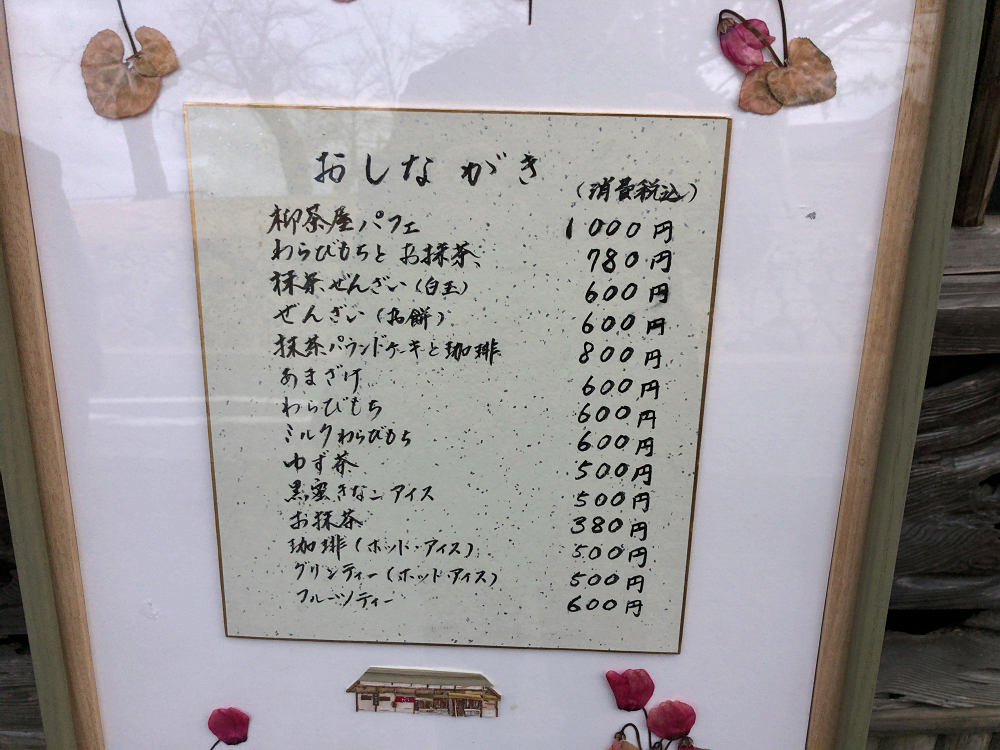 おしながき
(消費税込)
柳茶屋パフェ 1000円
わらびもちとお抹茶 780円
抹茶ぜんざい(白玉) 600円
ぜんざい(お餅) 600円
抹茶パウンドケーキと珈琲 800円
あまざけ 600円
わらびもち 600円
ミルクわらびもち 600円
ゆず茶 500円
黒蜜きなこアイス 500円
お抹茶 380円
珈琲(ホッド・アイス) 500円
グリンティー(ホッド・アイス) 500円
フルーツティー 600円